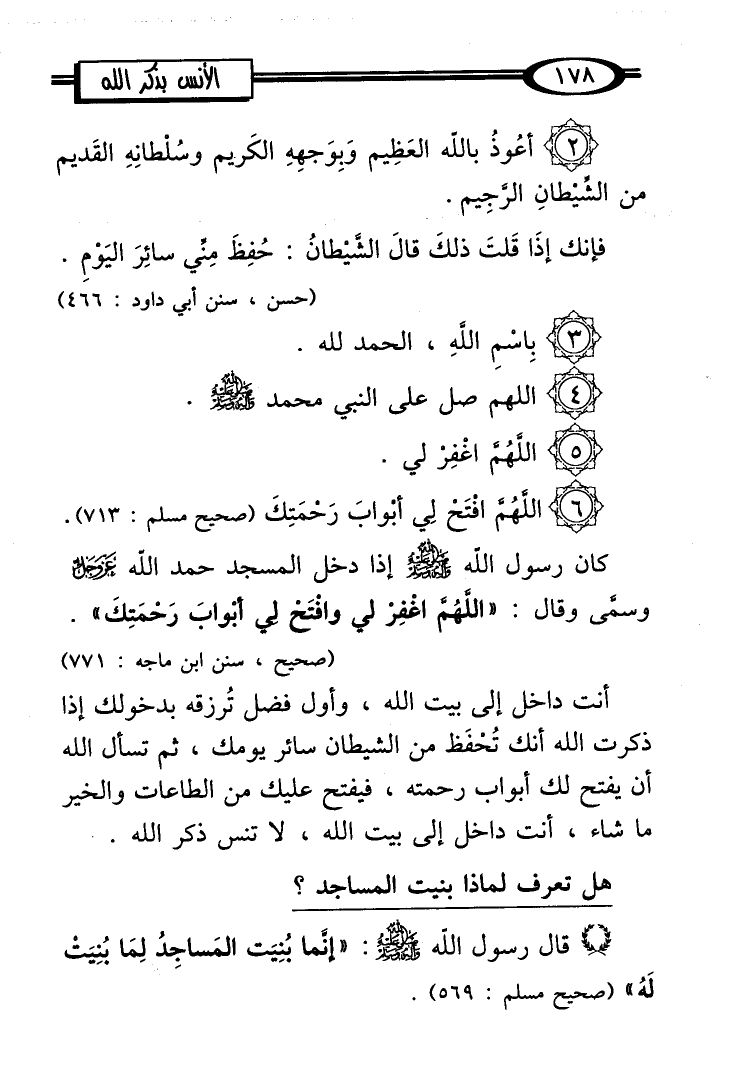 ١٧٨
الأنس بذكر الله
٢ أعُوذُ بالله العَظِيم وَبِوَجهِهِ الكَرِيم وسُلْطانِهِ القَدِيم
من الشِّيْطانِ الرَّجِيم .
فإنك إذَا قَلتَ ذلكَ قالَ الشَّيْطانُ : حُفِظَ مِنِّي سائِرَ اليَوْمِ .
(حسن ، سنن أبي داود : ٤٦٦)
٣ بِاسْمِ اللَّهِ ، الحمد لله .
٤ اللهم صل على النبي محمد ﷺ .
٥ اللَّهُمَّ اغْفِرْ لي .
٦ اللَّهُمَّ افْتَحْ لِي أبْوابَ رَحْمَتِكَ (صحيح مسلم : ٧١٣).
كان رسول الله ﷺ إذا دخل المسجد حمد الله عَزَّوَجَلَّ
وسمَّى وقال : «اللَّهُمَّ اغْفِرْ لي وافْتَحْ لِي أبْوابَ رَحْمَتِكَ» .
(صحيح ، سنن ابن ماجه : ٧٧١)
أنت داخل إلى بيت الله ، وأول فضل تُرزقه بدخولك إذا
ذكرت الله أنك تُحْفَظ من الشيطان سائر يومك ، ثم تسأل الله
أن يفتح لك أبواب رحمته ، فيفتح عليك من الطاعات والخير
ما شاء ، أنت داخل إلى بيت الله ، لا تنس ذكر الله .
هل تعرف لماذا بنيت المساجد ؟
قال رسول الله ﷺ : «إنَّما بُنِيَت المَساجِدُ لِمَا بُنِيَتْ
لَهُ» (صحيح مسلم : ٥٦٩) .